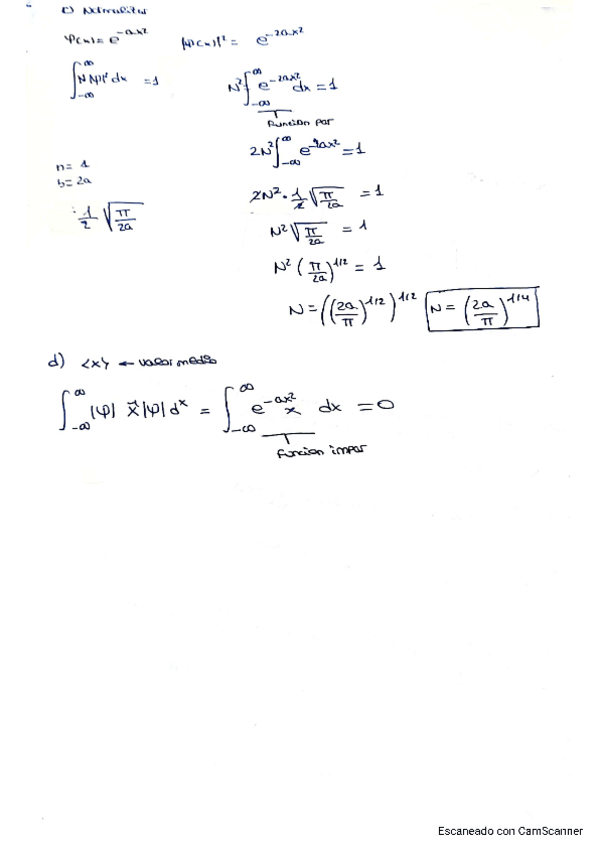 c) Normalizar
φ(x) = e^{-ax²} |φ(x)|² = e^{-2ax²}
∫_{-∞}^{∞} N|φ|² dx = 1 N² ∫_{-∞}^{∞} e^{-2ax²} dx = 1
Funcion par
2N² ∫_{-∞}^{∞} e^{-2ax²} = 1
n = 1
b = 2a
2N² · 1/2 √(π/2a) = 1
: 1/2 √(π/2a)
N² √(π/2a) = 1
N² (π/2a)^{1/2} = 1
N = ((2a/π)^{1/2})^{1/2} N = (2a/π)^{1/4}
d) <x> ← valor medio
∫_{-∞}^{∞} |φ| x⃗ |φ| d^x = ∫_{-∞}^{∞} e^{-ax²} x dx = 0
Funcion impar
Escaneado con CamScanner